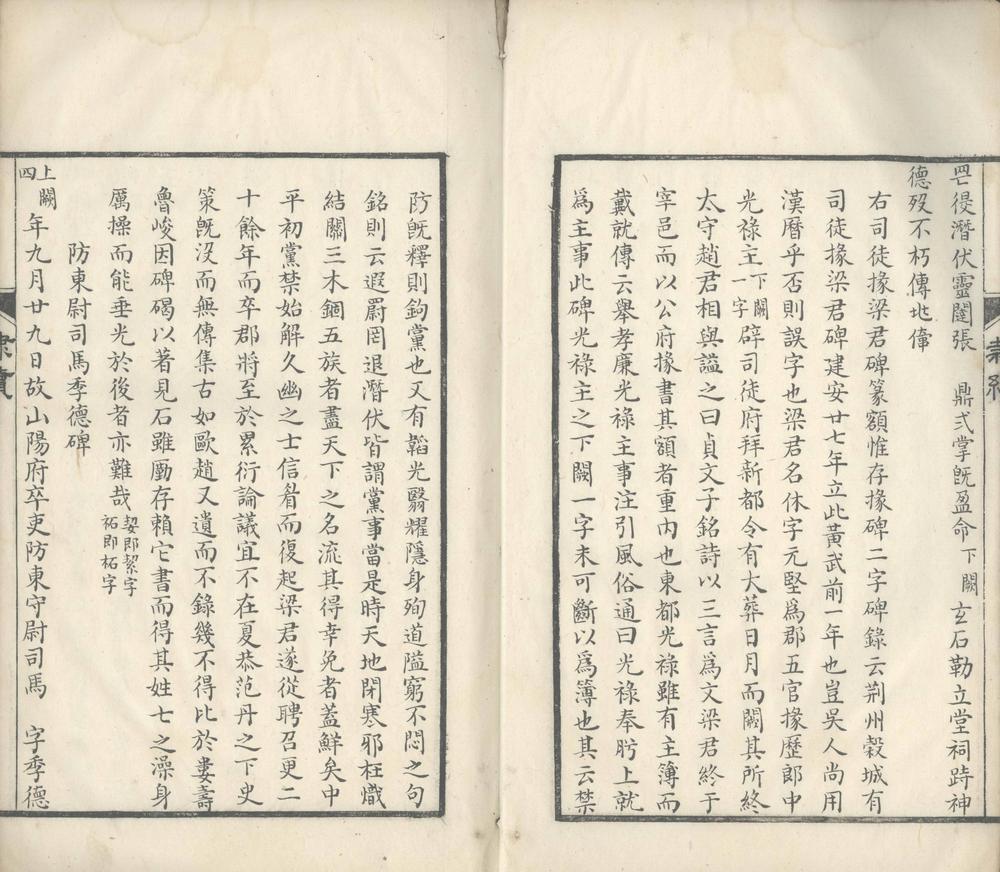 罡侵潛伏靈闓張　鼎式掌旣盈命下闕玄石勒立堂祠跱神
德歿不朽傳㘯偉
右司徒掾梁君碑篆額惟存掾碑二字碑錄云荆州榖城有
司徒掾梁君碑建安廿七年立此黃武前一年也豈吳人尚用
漢曆乎否則誤字也梁君名休字元堅爲郡五官掾歷郎中
光祿主下闕一字辟司徒府拜新都令有大葬日月而闕其所終
太守趙君相與謚之曰貞文子銘詩以三言爲文梁君終于
宰邑而以公府掾書其額者重内也東都光祿雖有主簿而
戴就傳云舉孝廉光祿主事注引風俗通曰光祿奉肹上就
爲主事此碑光祿主之下闕一字未可斷以爲簿也其云禁
防旣釋則鉤黨也又有韜光翳耀隱身殉道隘窮不悶之句
銘則云遐罻罔退潛伏皆謂黨事當是時天地閉塞邪枉熾
結關三木錮五族者盡天下之名流其得幸免者蓋鮮矣中
平初黨禁始解久幽之士信眉而復起梁君遂從聘召更二
十餘年而卒郡將至於累衍論議宜不在夏恭范丹之下史
策旣没而無傳集古如歐趙又遺而不錄幾不得比於婁壽
魯峻因碑碣以著見石雖勵存賴它書而得其姓七之澡身
厲操而能垂光於後者亦難哉挈即絜字祏即柘字
防東尉司馬季德碑
上闕四年九月廿九日故山陽府卒吏防東守尉司馬　字季德
隷續
隷續